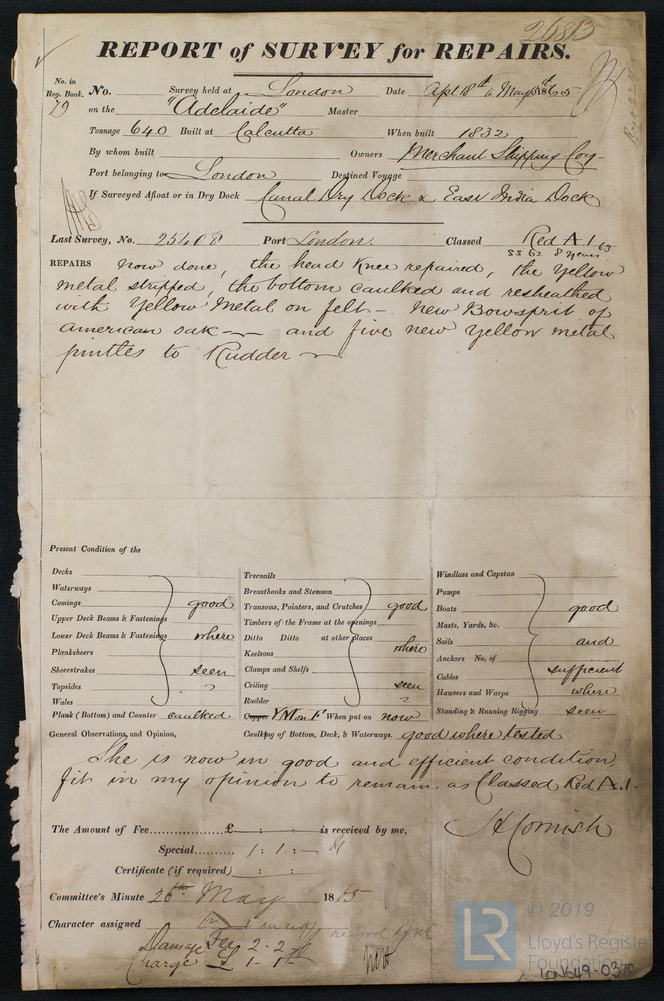 268B
REPORT of SURVEY for REPAIRS.
No. in Reg. Book. No. Survey held at London Date Apl 18th to May 1865
79 on the "Adelaide" Master
Tonnage 640 Built at Calcutta When built 1832
By whom built Owners Merchant Shipping Coy
Port belonging to London Destined Voyage
If Surveyed Afloat or in Dry Dock Canal Dry Dock & East India Dock
Last Survey, No. 25408 Port London. Classed Red A 1 63
SS 62 8 years
REPAIRS now done, the head Knee repaired, the Yellow
metal stripped, the bottom caulked and resheathed
with Yellow Metal on felt - New Bowsprit of
american oak — and five new Yellow metal
pintles to Rudder —
Present Condition of the
Decks
Waterways
Comings good
Upper Deck Beams & Fastenings
Lower Deck Beams & Fastenings where
Planksheers
Sheerstrakes seen
Topsides "
Wales
Plank (Bottom) and Counter caulked
Treenails
Breasthooks and Stemson
Transoms, Pointers, and Crutches good
Timbers of the Frame at the openings
Ditto Ditto at other places where
Keelsons
Clamps and Shelfs
Ceiling seen
Rudder "
Copper YM on Ft When put on now
Windlass and Capstan
Pumps
Boats good
Masts, Yards, &c.
Sails and
Anchors No. of sufficient
Cables
Hawsers and Warps where
Standing & Running Rigging seen
General Observations, and Opinion, Caulking of Bottom, Deck, & Waterways. good where tested
She is now in good and efficient condition,
fit in my opinion to remain as Classed Red A.1.
The Amount of Fee £ : : is received by me, H Cornish
Special 1 : 1 : -
Certificate (if required) : :
Committee's Minute 26th May 1865
Character assigned
Damage Fee 2-2
Charge £ 1-1
LR © 2019
Lloyd's Register
Foundation
LON649-0370